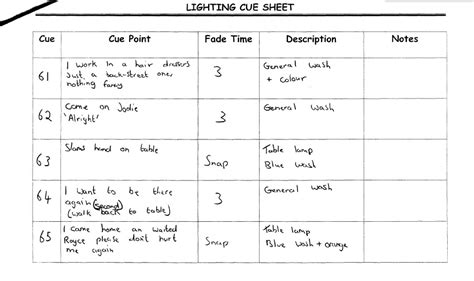 LIGHTING CUE SHEET
Cue Cue Point Fade Time Description Notes
61
I work in a hair dressers
Just a back-street one,
nothing fancy
3
General wash
+ colour
62
Come on Jodie
'Alright'
3
General wash
63
Slams hand on table
Snap
Table lamp
Blue wash
64
I want to be there
again (second)
(walk back to table)
3
General wash
65
I came home an waited
Royce please don't hurt
me again
Snap
Table lamp
Blue wash + orange